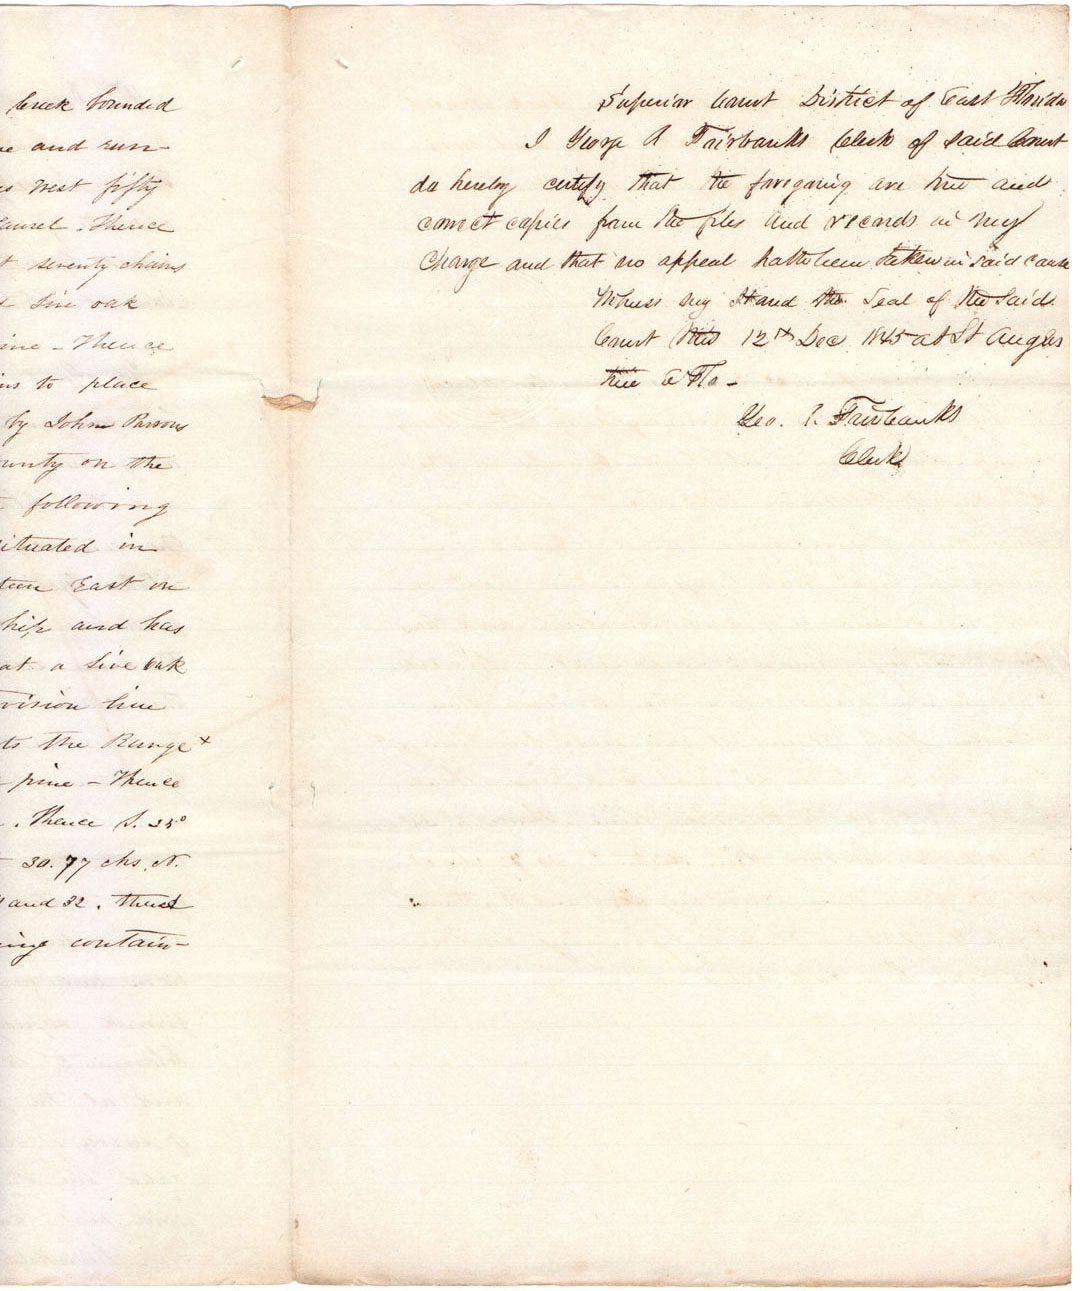 Creek bounded
and run-
west fifty
Laurel. Thence
seventy chains
Live oak
Thence
to place
by John Parsons
on the
following
situated in
East on
and has
at a Live Oak
line
the Range
pine - Thence
. Thence S. 25°
30.77 chs. N.
and 32. thence
contain-
Superior Court District of East Florida
I George R Fairbanks Clerk of Said Court
do hereby certify that the foregoing are true and
correct copies from the files and records in my
Charge and that no appeal hath been taken in said cause
Witness my Hand the Seal of the Said
Court this 12th Dec 1845 at St Augus
tine E Fla -
Geo. R. Fairbanks
Clerk